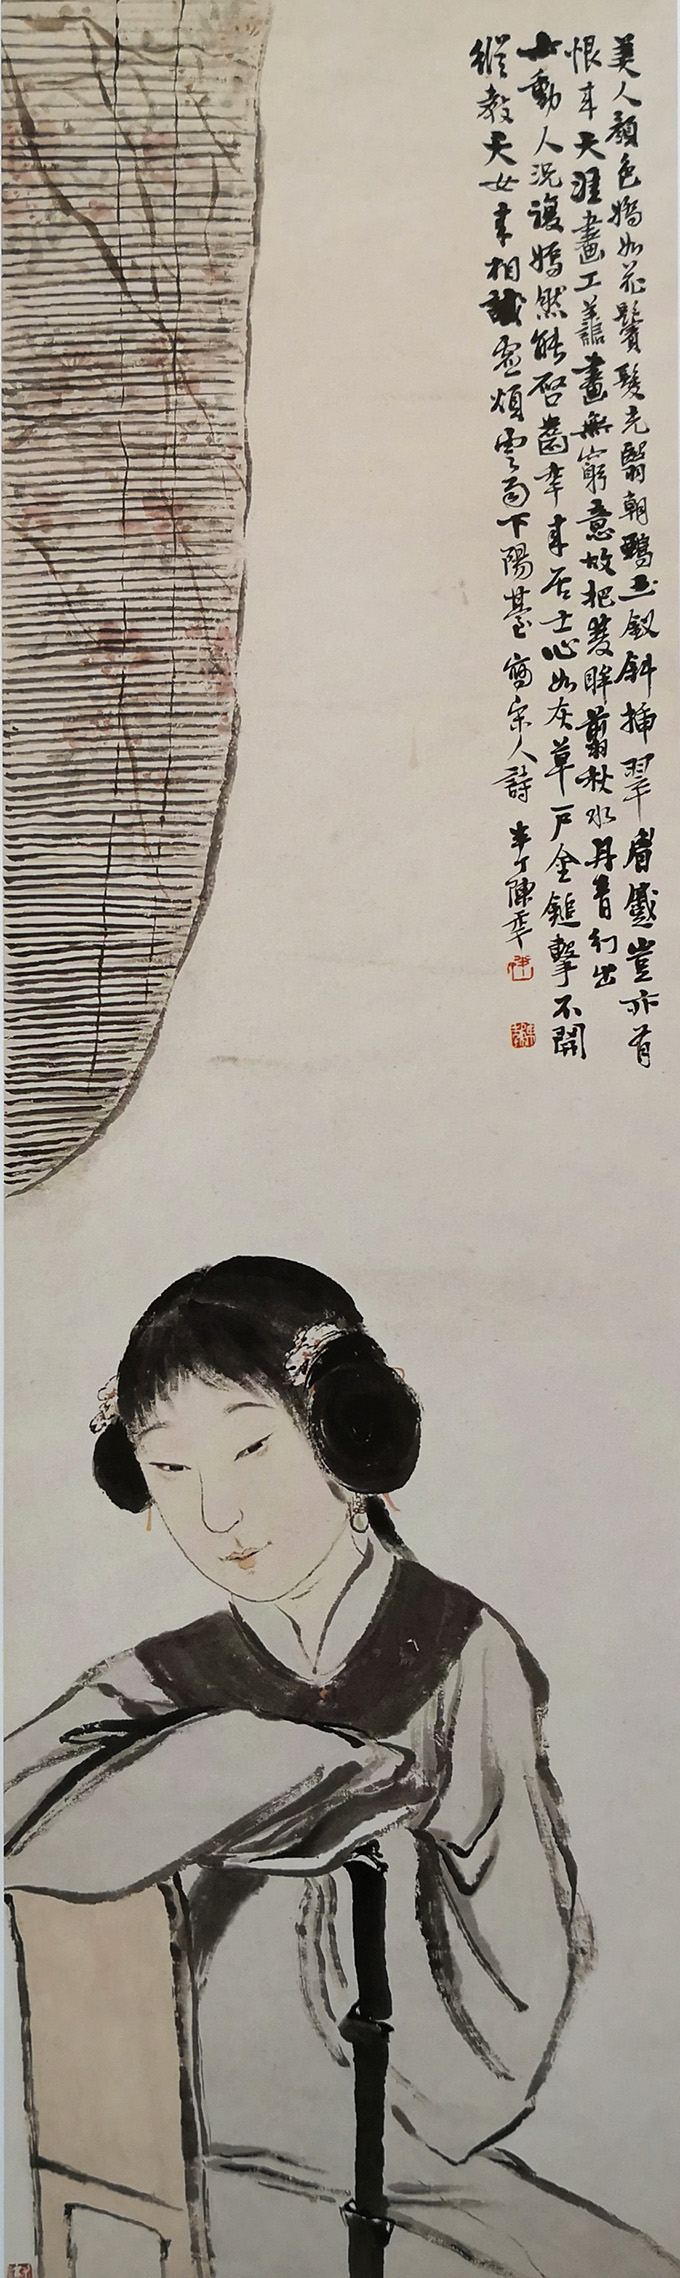 美人顏色嬌如花鬢髮光翳朝鴉玉釵斜插翠眉蹙豈亦有
恨來天涯畫工善畫無窮意故把雙眸翦秋水丹青幻出
動人況複嫣然能啓齒年來居士心如灰草戶金鎚擊不開
縱教天女來相試虛煩雲雨下陽臺 寫宋人詩 半丁陳年